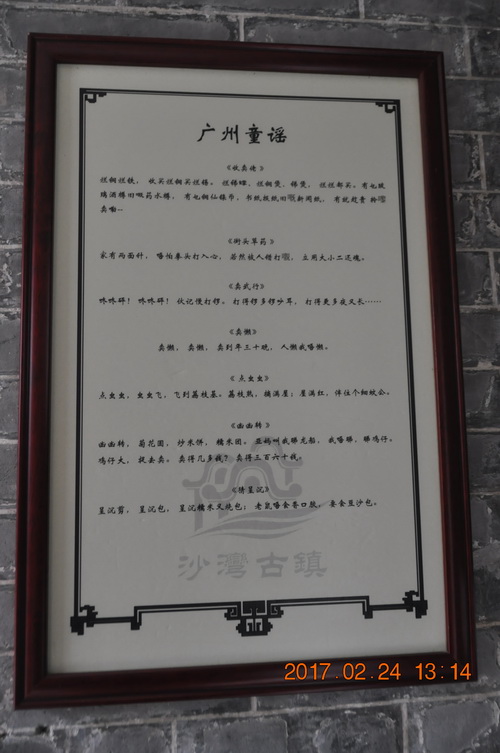 广州童谣
《收卖佬》
烂铜烂铁，收买烂铜买烂锡。烂锡罉，烂铜煲，锡煲，烂烂都买。有乜玻
璃酒樽旧嘅药水樽，有乜铜仙银币，书纸报纸旧嘅新闻纸，有就赶耷
卖啲…
《街头草药》
家有两面针，唔怕拳头打入心，若然被人错打，立用大小二还魂。
《卖武行》
咚咚砰！咚咚砰！伙记慢打锣。打得锣多锣吵耳，打得更多夜又长……
《卖懒》
卖懒，卖懒，卖到年三十晚，人懒我唔懒。
《点虫虫》
点虫虫，虫虫飞，飞到荔枝基。荔枝熟，摘满屋；屋满红，伴住个细蚊公。
《凼凼转》
凼凼转，菊花园，炒米饼，糯米团。亚妈叫我睇龙船，我唔睇，睇鸡仔。
鸡仔大，捉去卖。卖得几多钱？卖得三百六十钱。
《猜呈沉》
呈沉剪，呈沉包，呈沉糯米叉烧包；老鼠唔食香口胶，要食豆沙包。
沙灣古鎮
2017.02.24 13:14